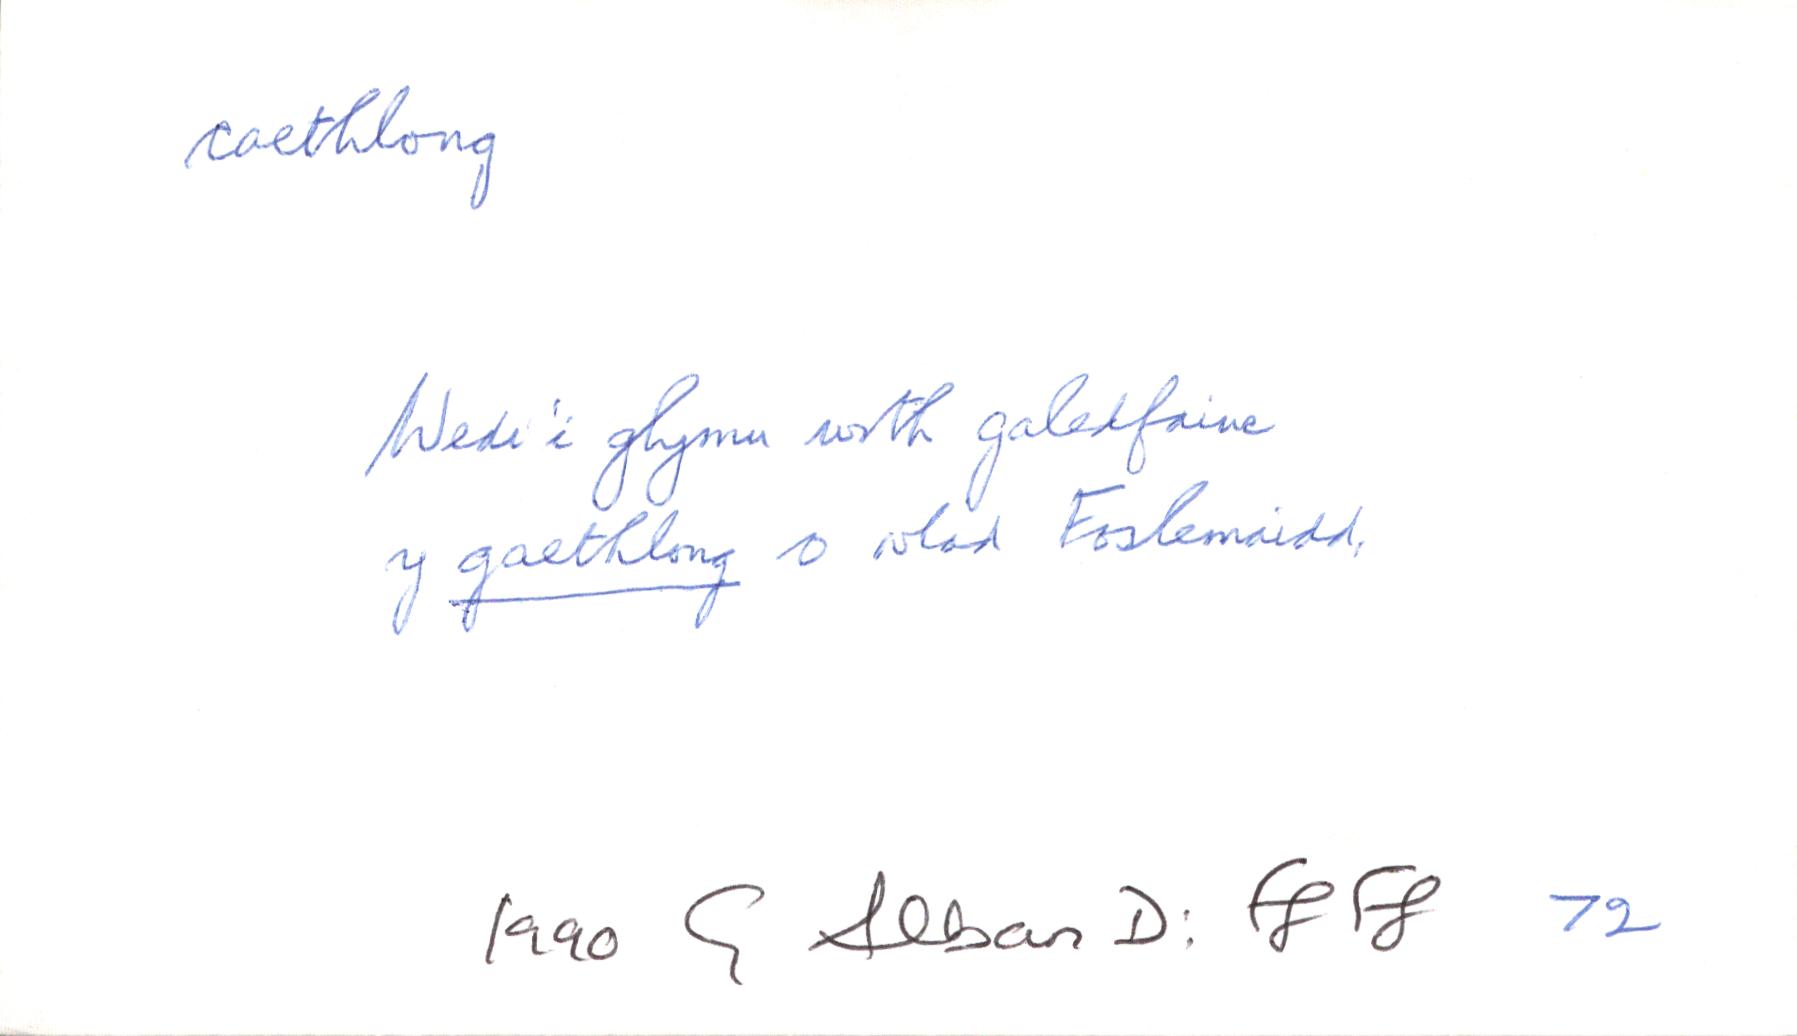 caethlong
Wedi'i ghymu wrth galedfainc
y gaethlong o wlad Foslemaidd,
1990 G Alban D: Ff Ff 72